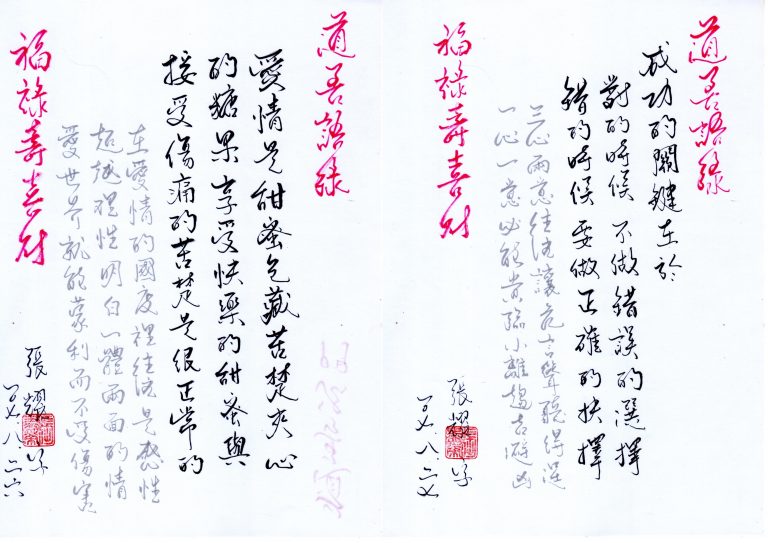 道吾語錄
愛情是甜蜜包藏苦楚夾心
的糖果享受快樂的甜蜜與
接受傷痛的苦楚是很正常的
在愛情的國度裡往往是感性
超越理性明白一體兩面的情
愛世界就能蒙利而不受傷害
福祿壽喜財
張耀
八.二六
道吾語錄
成功的關鍵在於
對的時候 不做錯誤的選擇
錯的時候 要做正確的抉擇
三心兩意往往讓危言聳聽得逞
一心一意必能貴臨小離趨吉避凶
福祿壽喜財
張耀
八.二七